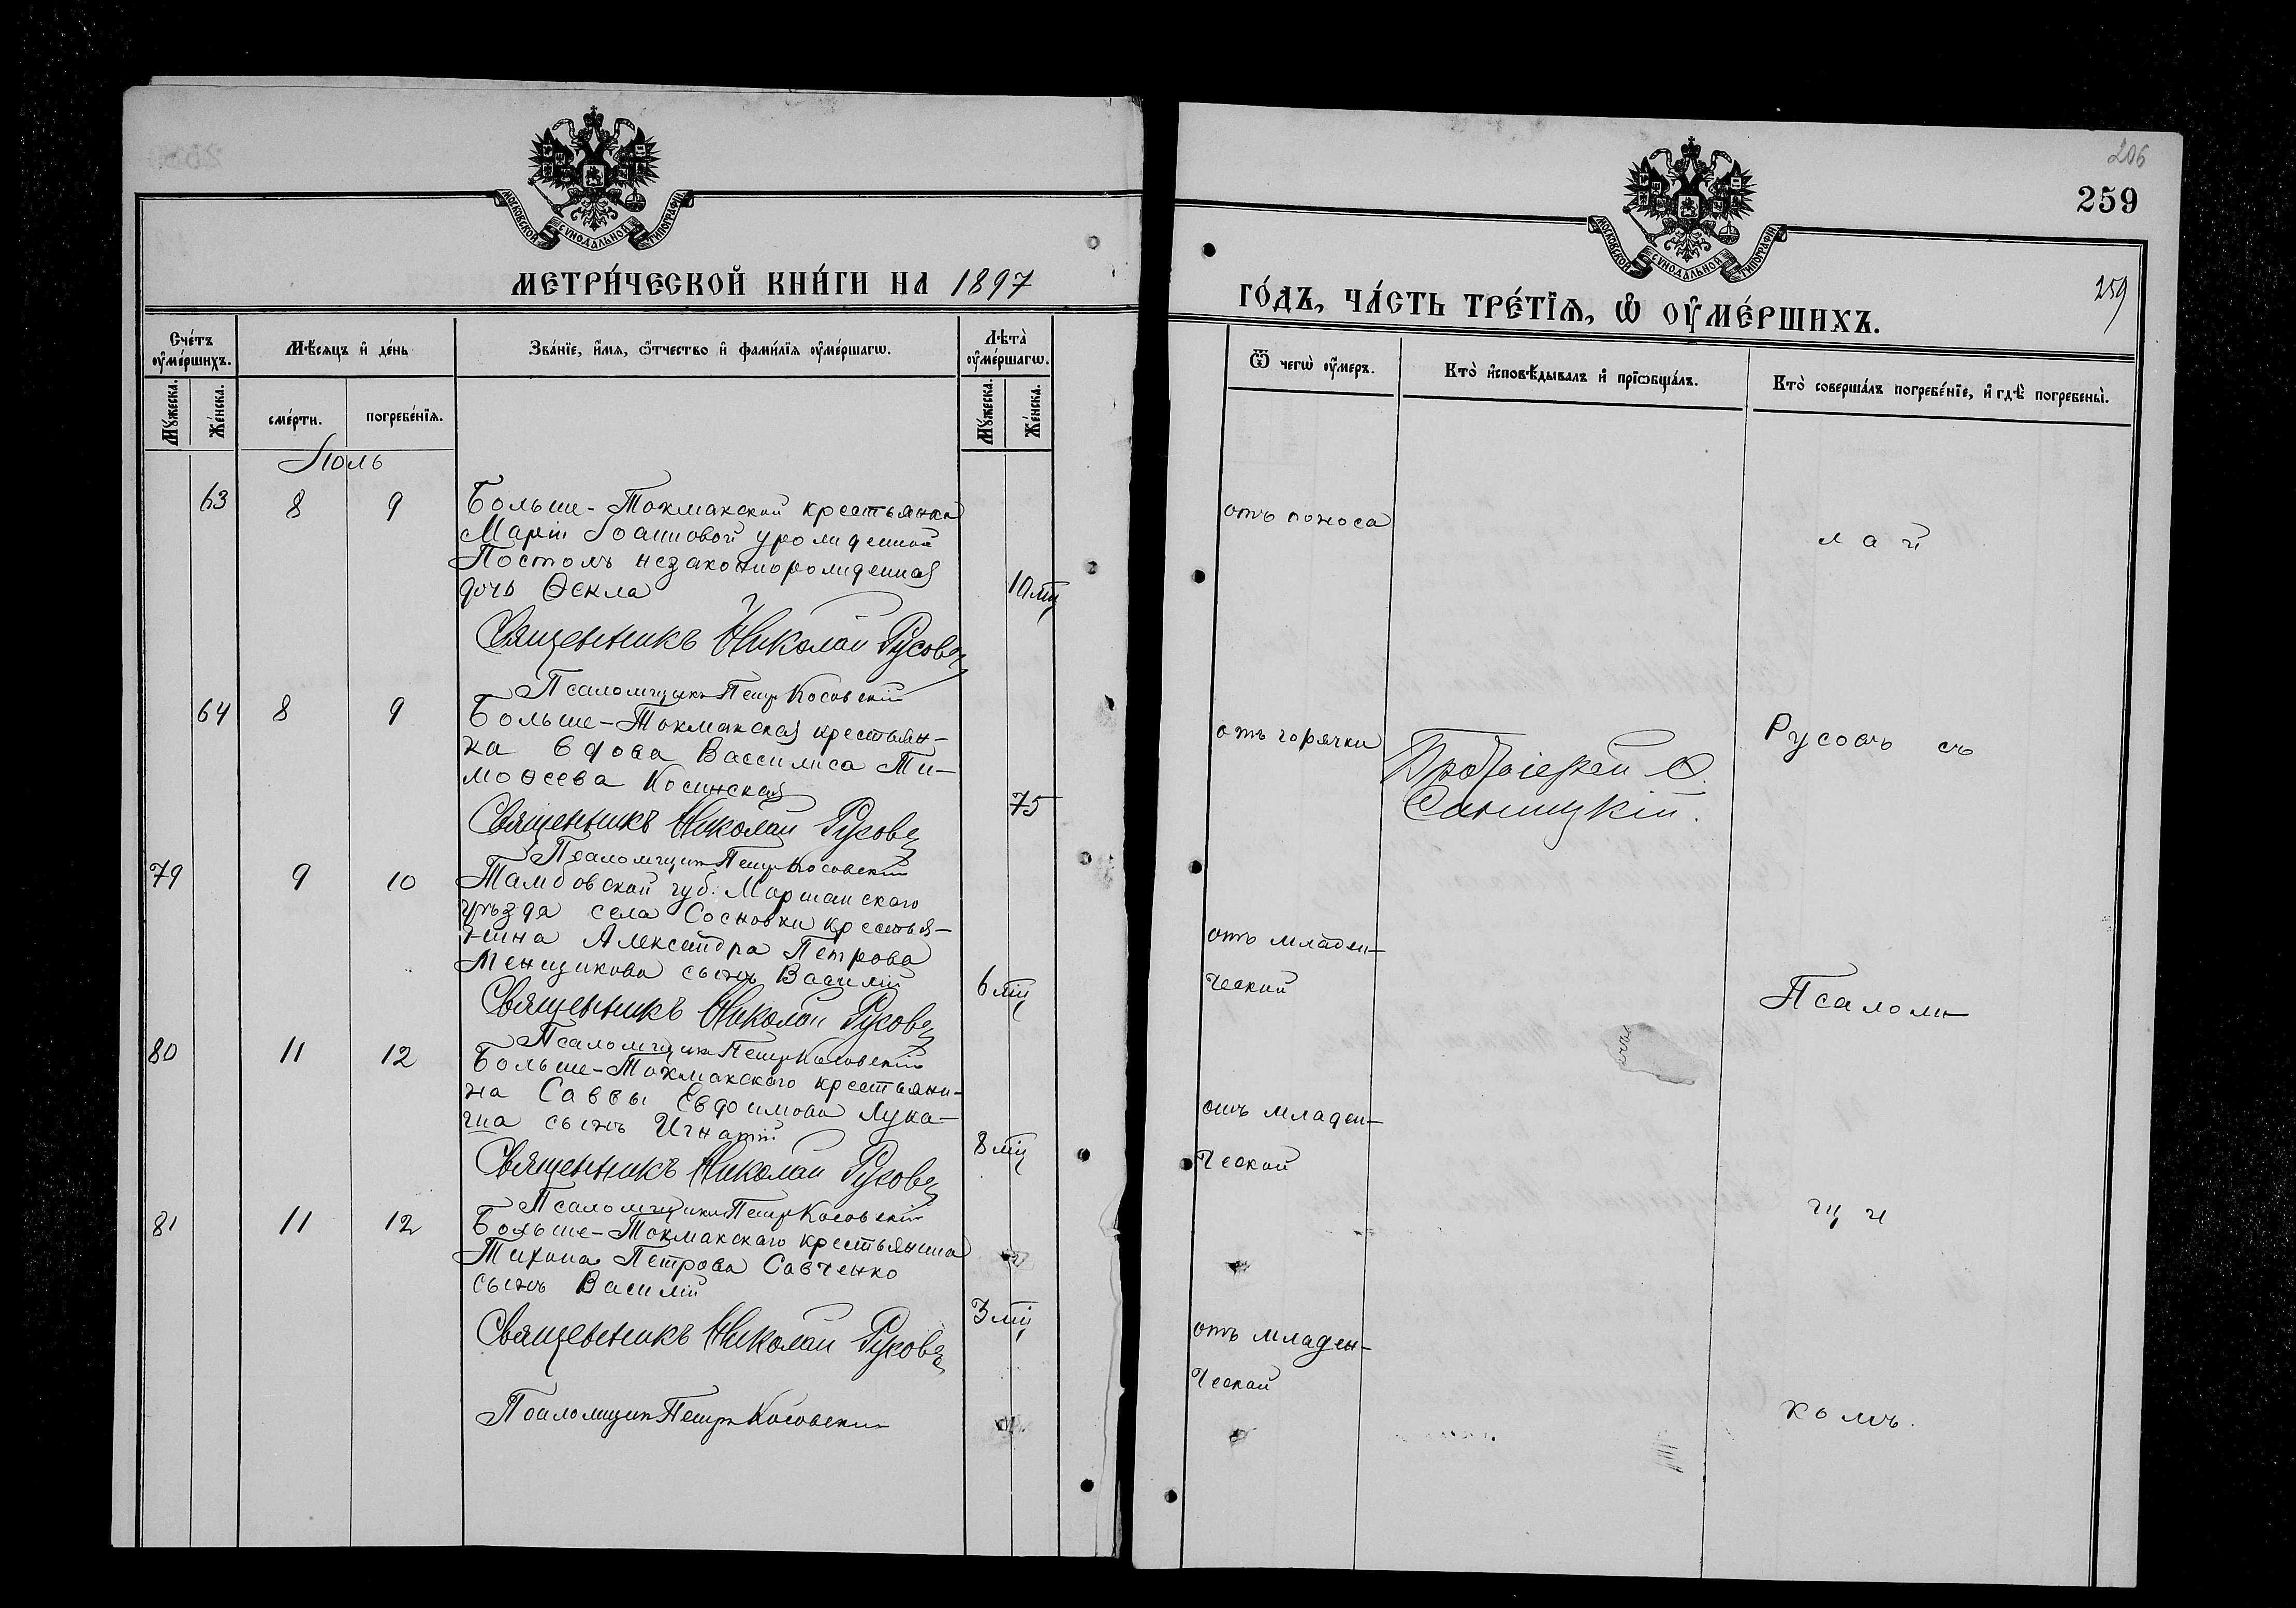 МОСКОВСКОЙ СУНОДАЛЬНОЙ ТИПОГРАФІИ
МЕТРИ́ЧЕСКОЙ КНИ́ГИ НА 1897
Сче́тъ ᲂу҆ме́ршихъ.
Мѣ́сяцъ и҆ де́нь
Зва́нїе, и҆́мя, ѻ҆́тчество и҆ фами́лїя ᲂу҆ме́ршагѡ.
Лѣта̀ ᲂу҆ме́ршагѡ.
Мꙋ́жеска.
Же́нска.
сме́рти.
погребе́нїя.
Мꙋ́жеска.
Же́нска.
Іюль
63 8 9 Больше-Токмакской крестьянки
Маріи Іоанновой урожденной
Постолъ незаконнорожденная
дочь Ѳекла 10 мц
Священникъ Николай Русовъ
Псаломщикъ Петръ Косовскій
64 8 9 Больше-Токмакская крестьян-
ка вдова Василиса Ти-
моѳеева Косинская 75
Священникъ Николай Русовъ
Псаломщикъ Петръ Косовскій
79 9 10 Тамбовской губ. Моршанскаго
уѣзда села Сосновки крестья-
нина Александра Петрова
Менщикова сынъ Василій 6 мц
Священникъ Николай Русовъ
Псаломщикъ Петръ Косовскій
80 11 12 Больше-Токмакскаго крестьяни-
на Саввы Евдокимова Лука-
ша сынъ Игнатій 8 мц
Священникъ Николай Русовъ
Псаломщикъ Петръ Косовскій
81 11 12 Больше-Токмакскаго крестьянина
Тихона Петрова Савченко
сынъ Василій 3 мц
Священникъ Николай Русовъ
Псаломщикъ Петръ Косовскій
206
259
МОСКОВСКОЙ СУНОДАЛЬНОЙ ТИПОГРАФІИ
259
ГО́ДЪ, ЧА́СТЬ ТРЕ́ТЇЯ, Ѡ҆ ОУ҆МЕ́РШИХЪ.
Ѿ чегѡ̀ ᲂу҆́меръ.
Кто̀ и҆сповѣ́дывалъ и҆ прїѡбща́лъ.
Кто̀ соверша́лъ погребе́нїе, и҆ гдѣ̀ погребены̀.
отъ поноса
лай
отъ горячки
Протоіерей
Синицкій.
Русовъ съ
отъ младен-
ческой
Псалом-
отъ младен-
ческой
щи
отъ младен-
ческой
комъ.